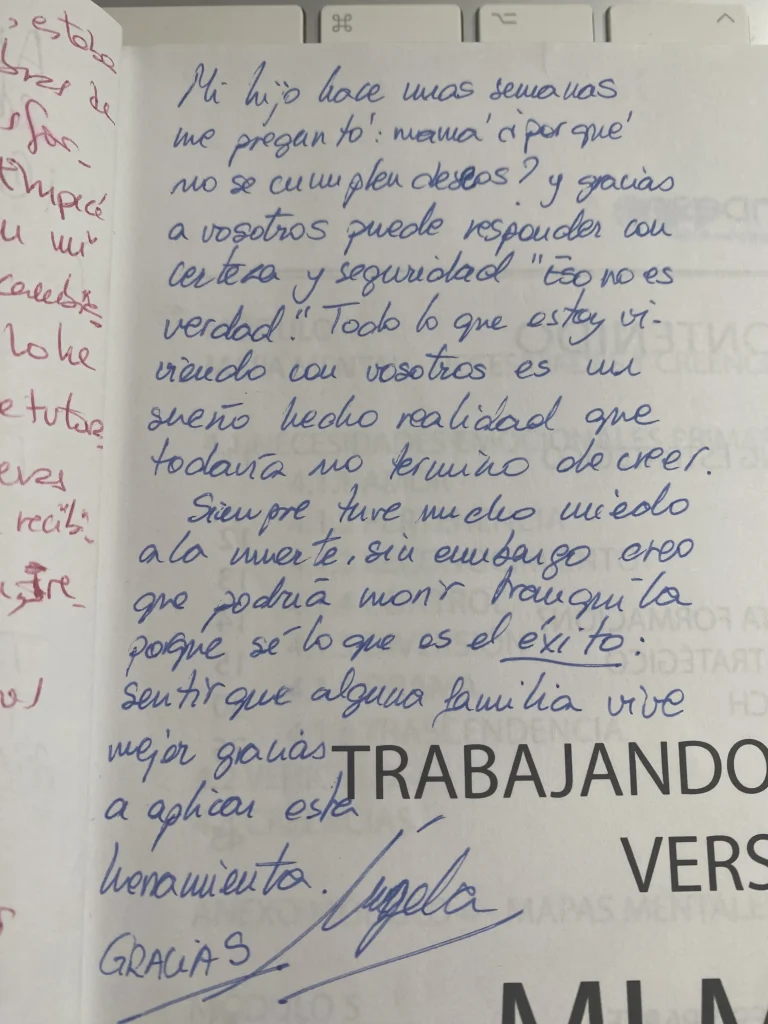 Mi hijo hace unas semanas
me preguntó: mamá ¿por qué
no se cumplen deseos? y gracias
a vosotros puede responder con
certeza y seguridad "Eso no es
verdad." Todo lo que estoy vi-
viendo con vosotros es un
sueño hecho realidad que
todavía no termino de creer.
Siempre tuve mucho miedo
a la muerte, sin embargo creo
que podría morir tranquila
porque sé lo que es el éxito:
sentir que alguna familia vive
mejor gracias
a aplicar esta
herramienta.
GRACIAS Ángela
TRABAJANDO
VERS
MI M
estaba
bras de
sfor-
Empecé
u mi
cambi-
lo he
e tutor
eras
recibi-